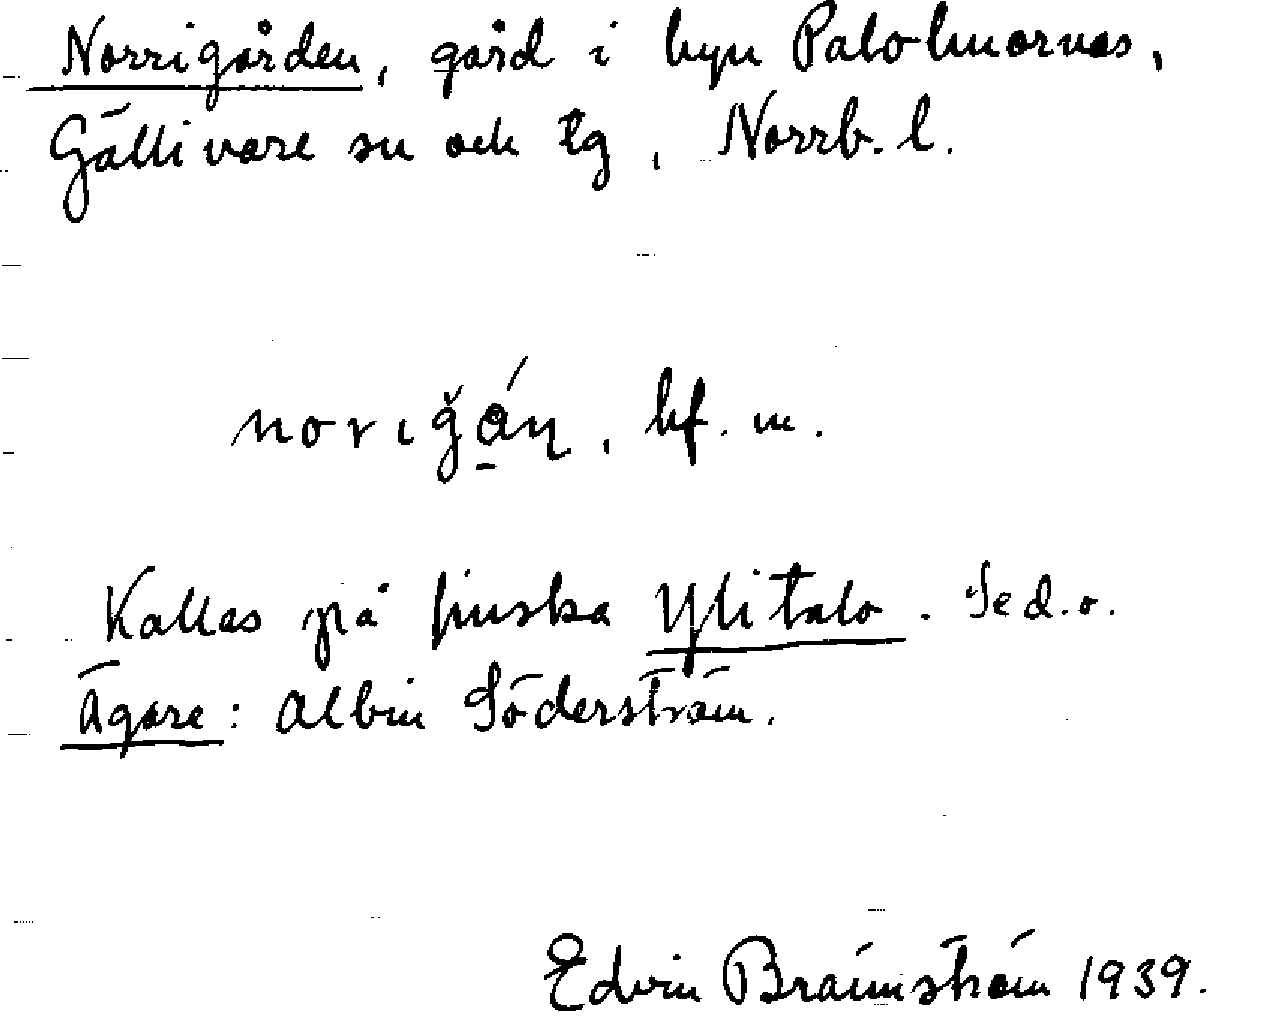 Norrigården, gård i byn Palohuornas,
Gällivare sn och tg, Norrb. l.
norıǧǻṇ, bf. m.
Kallas på finska Ylitalo. Se d. o.
Ägare: Albin Söderström.
Edvin Brännström 1939.